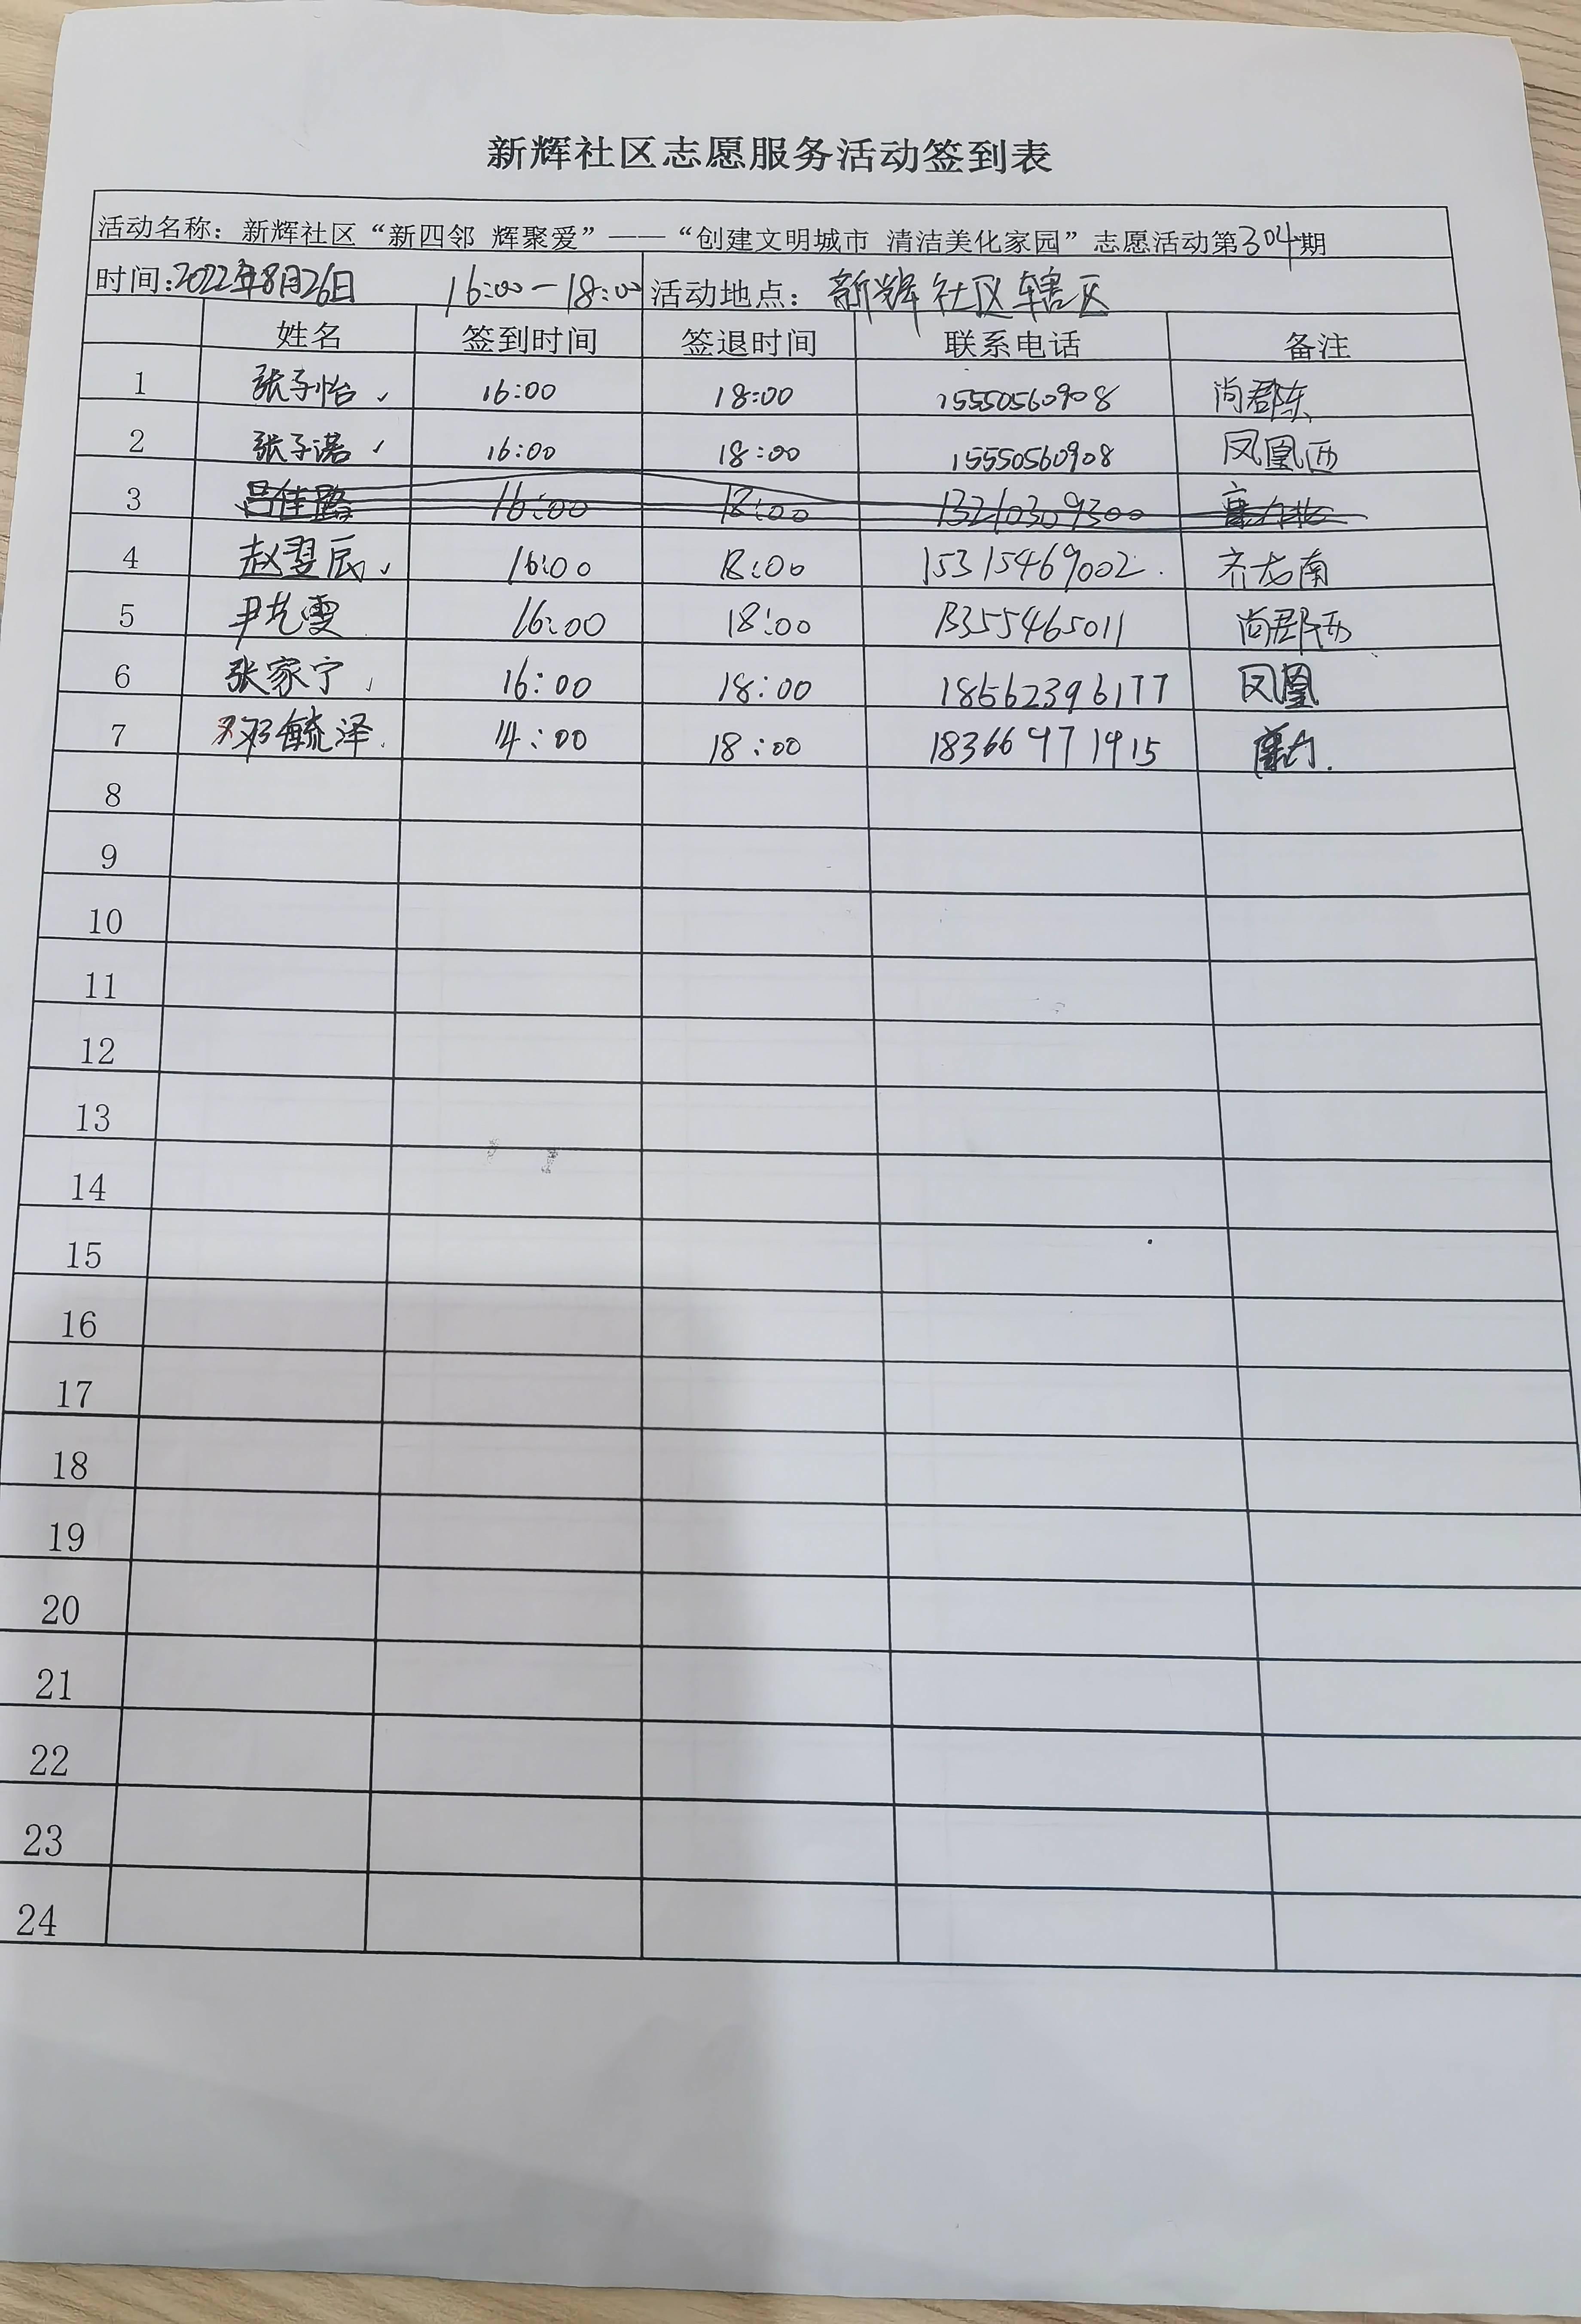 新辉社区志愿服务活动签到表
活动名称：新辉社区“新四邻 辉聚爱”——“创建文明城市 清洁美化家园”志愿活动第304期
时间：2022年8月26日 16:00－18:00 活动地点：新辉社区辖区
姓名 签到时间 签退时间 联系电话 备注
1 张子怡 ✓ 16:00 18:00 15550560908 尚郡东
2 张子诺 ✓ 16:00 18:00 15550560908 凤凰西
3 吕佳璐 16:00 18:00 13210309300
4 赵翌辰 ✓ 16:00 18:00 15315469002. 齐龙南
5 尹艺雯 16:00 18:00 13355465011 尚郡西
6 张家宁 ✓ 16:00 18:00 18562396177 凤凰
7 邓毓泽 14:00 18:00 18366971915
8
9
10
11
12
13
14
15
16
17
18
19
20
21
22
23
24